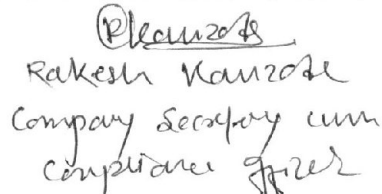 Rakesh Kanzode
Company Secretary cum
Compliance Officer